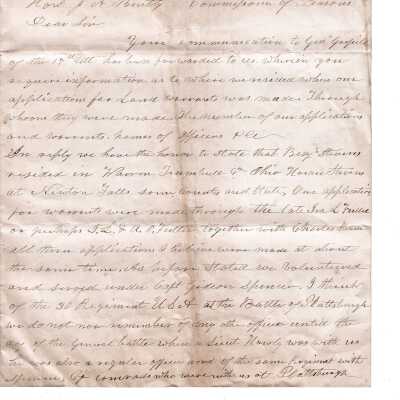 Hon. J. A. Commissioner of Pensions
Dear Sir
Your communication to Geo
of the 17th ult has been forwarded to us wherein you
require information as to where we resided when our
application for Land warrants was made Through
whom they were made The number of our applications
and warrants. names of officers &c
In reply we have the honor to state that Benj Stevens
resided in Warren Trumbull Co Ohio Horace Stevens
at Newton Falls same county and State, Our application
for warrants were made through the late
or perhaps together with Charles
all three applications I believe were made at about
the same time. As before Stated we Volunteered
and served under Capt Gideon Spencer. I think
of the 30 Regiment U.S.A. at the Battle of Plattsburgh
we do not now remember of any other officer until the
day of the General battle when a Lieut was with us
he was also a regular officer and of the same Regiment with
Spencer, comrades who were with us at Plattsburgh